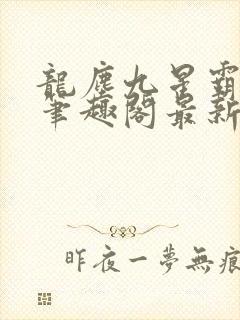 龍塵九星霸
筆趣閣最新
昨夜一夢無痕